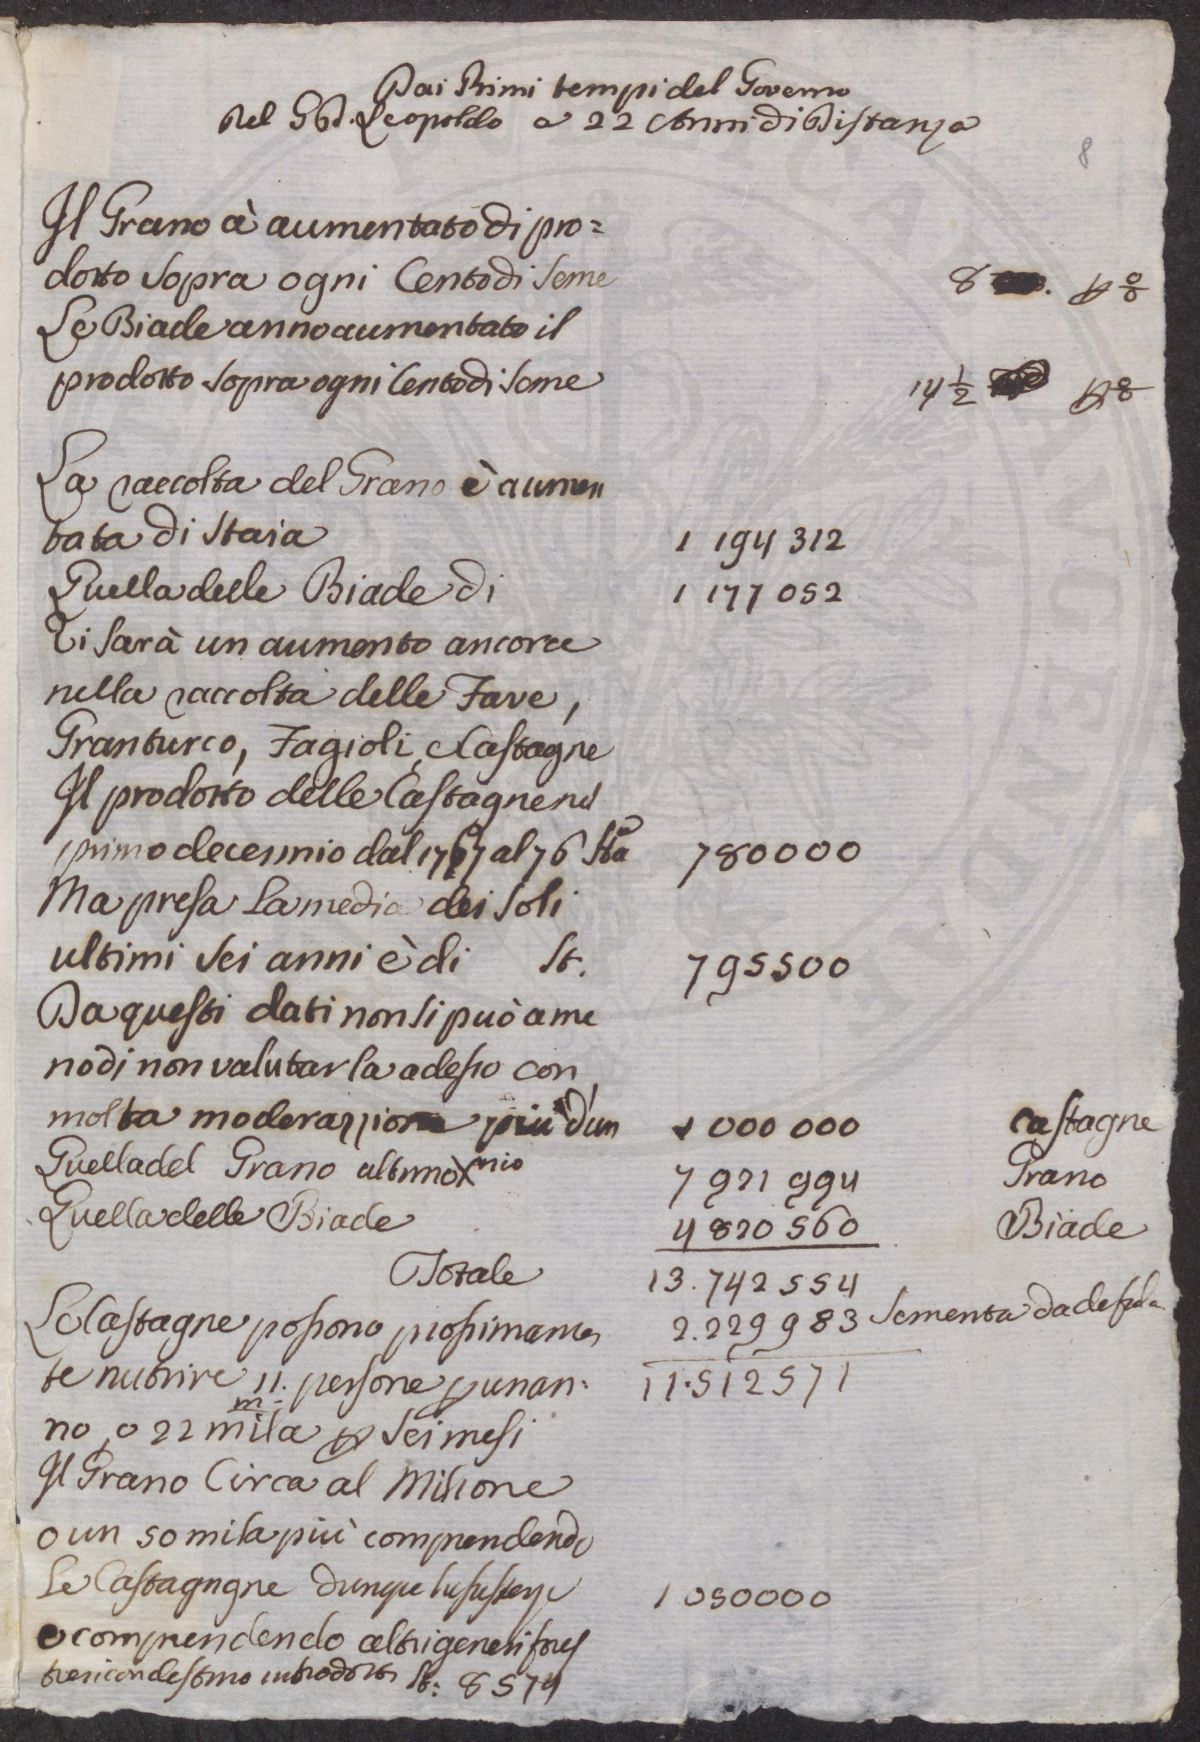 Dai Primi tempi del Governo
Del G.D. Leopoldo a 22 Anni di Distanza
8
Il Grano à aumentato di pro=
dotto sopra ogni Cento di Seme 8 . p %
Le Biade anno aumentato il
prodotto sopra ogni Cento di Seme 14 1/2 p %
La raccolta del Grano è aumen
tata di Staia 1 194 312
Quella delle Biade di 1 177 052
Vi sarà un aumento ancora
nella raccolta delle Fave,
Granturco, Fagioli, Castagne
Il prodotto delle Castagne nel
primo decennio dal 1767 al 76 Sta 780000
Ma presa la media dei soli
ultimi sei anni è di St. 795500
Da questi dati non si può a me
no di non valutarla adesso con
molta moderazzione più d'un 1 000 000 Castagne
Quella del Grano ultimo Xnnio 7 921 994 Grano
Quella delle Biade 4 820 560 Biade
Totale 13.742 554
2.229 983 Sementa da
Le Castagne possono prossimamen
11.512571
te nutrire 11. persone p un an=
m
no, o 22 mila p sei mesi
Il Grano Circa al Milione
o un 50 mila più comprendendo
Le Castagngne dunque 1 050000
o comprendendo altri generi
introdotti St: 8574